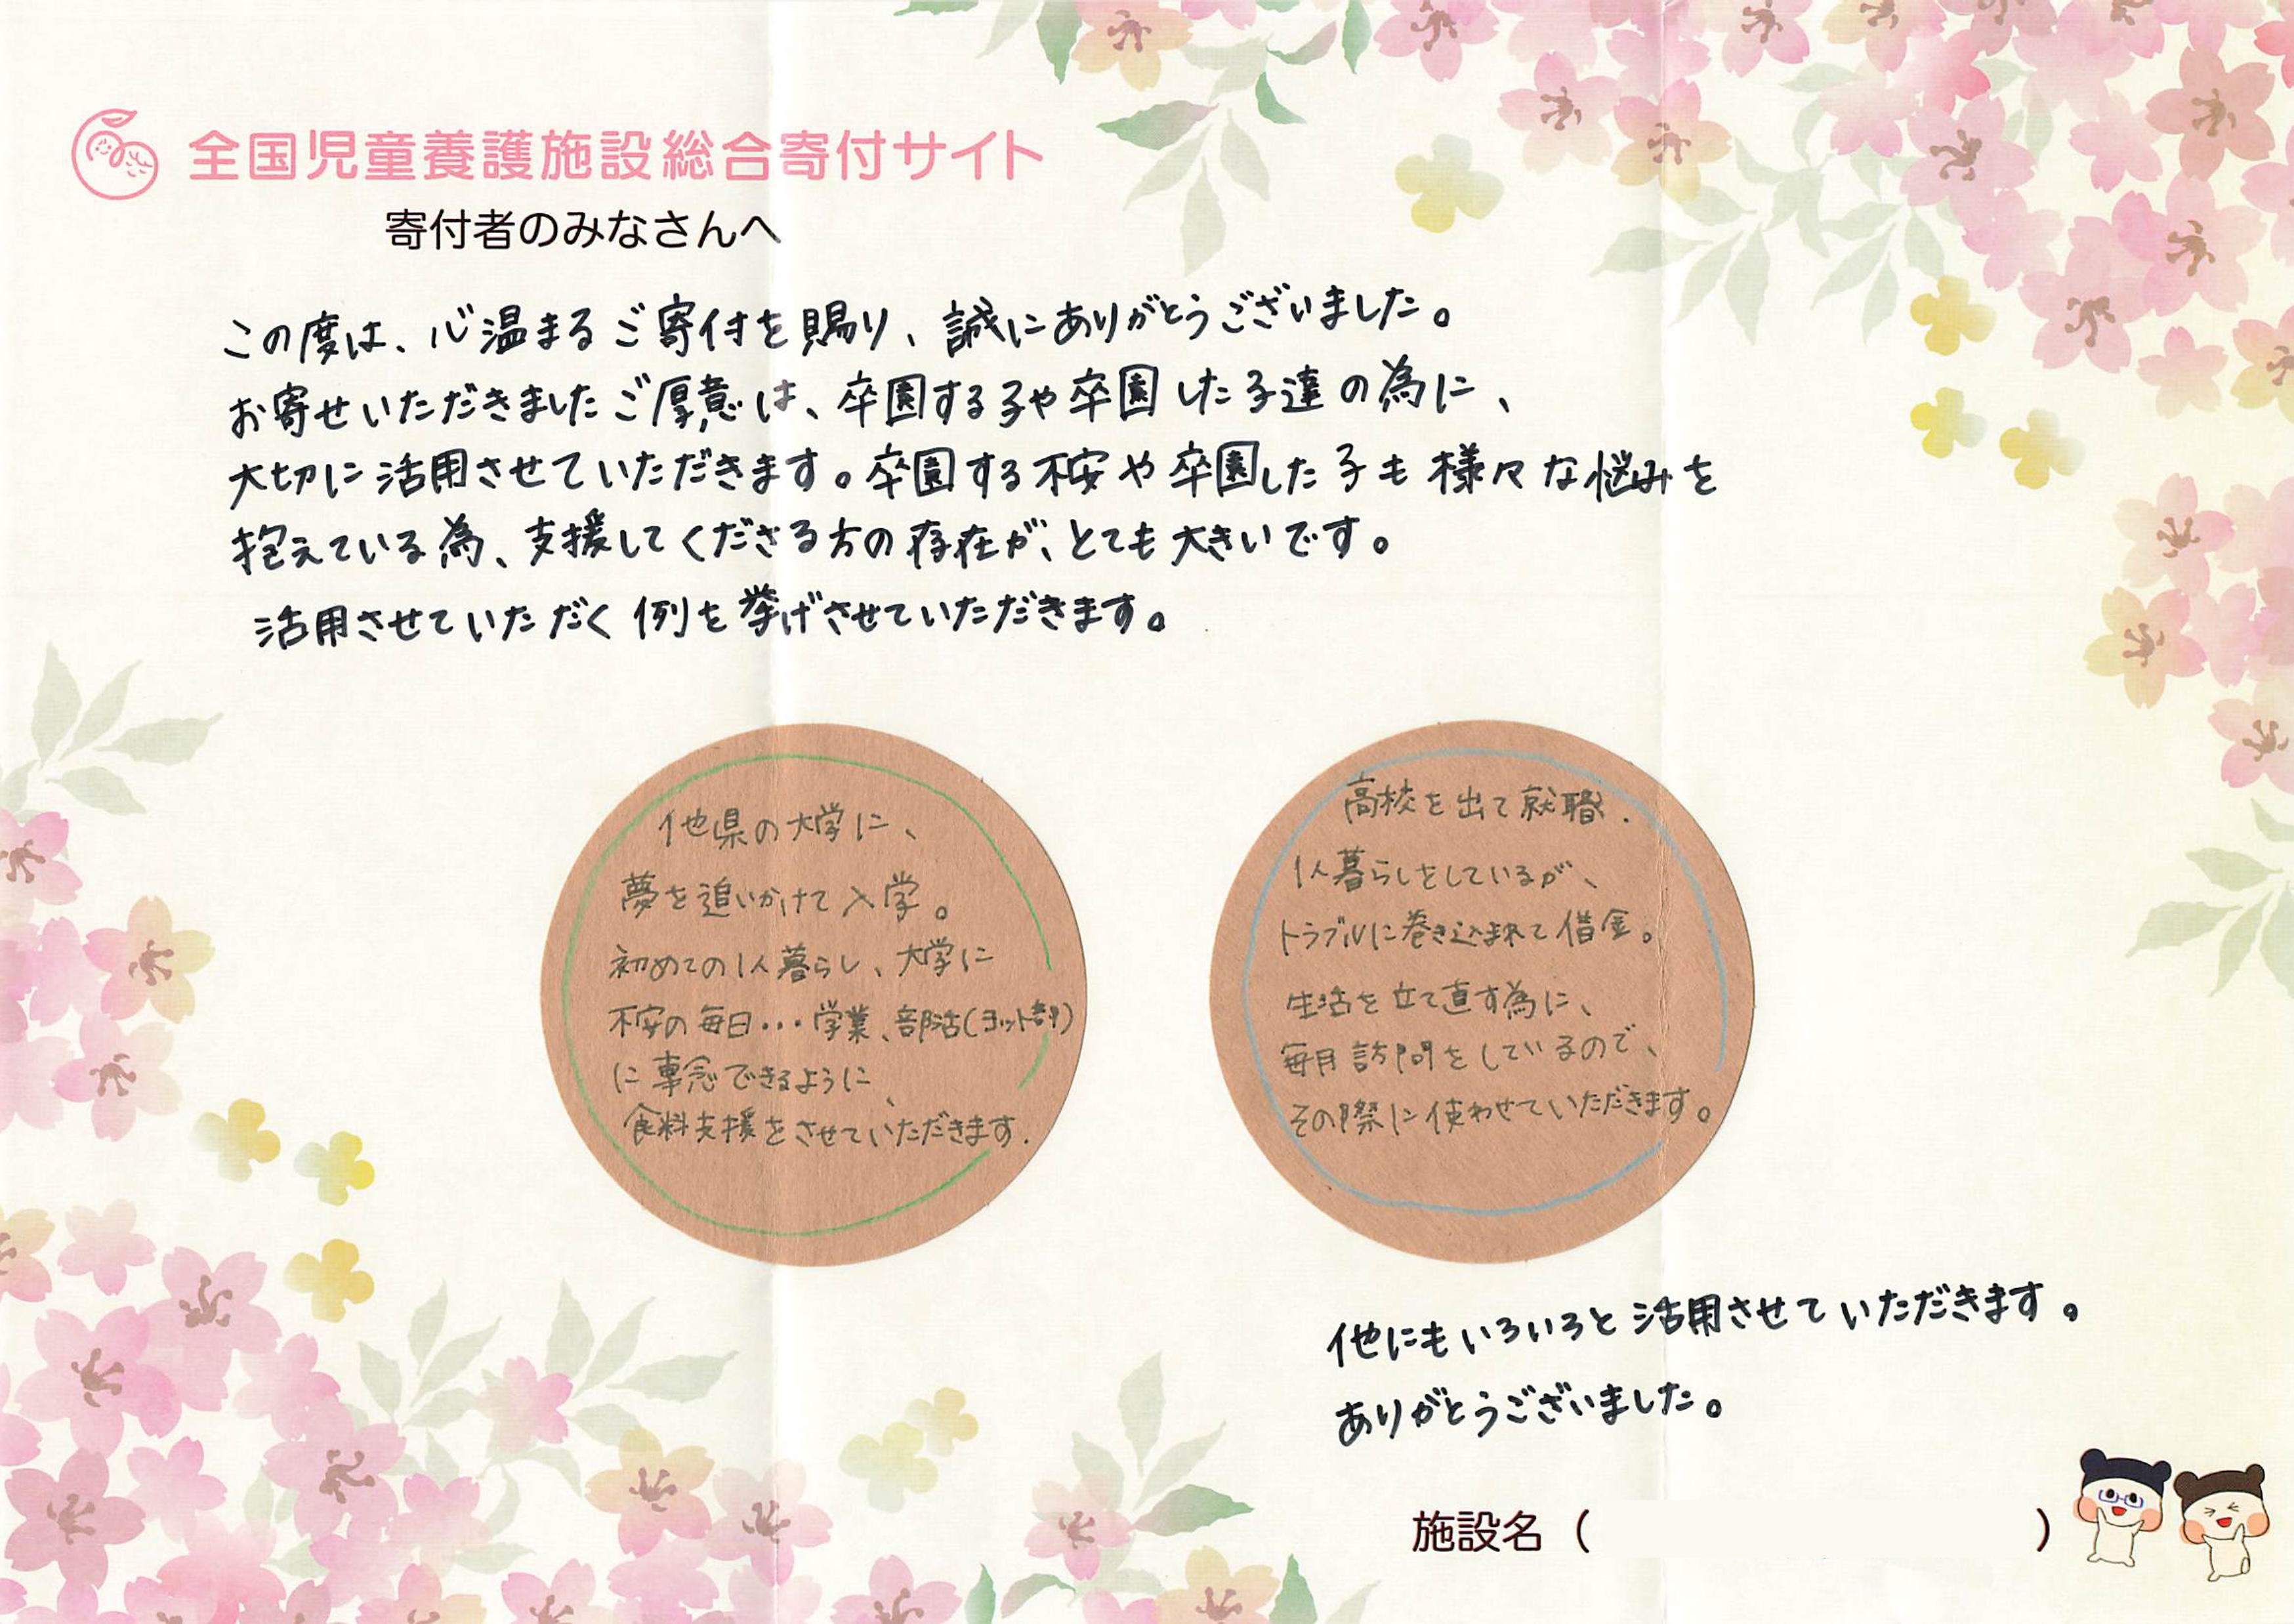 全国児童養護施設総合寄付サイト
寄付者のみなさんへ
この度は、心温まるご寄付を賜り、誠にありがとうございました。
お寄せいただきましたご厚意は、卒園する子や卒園した子達の為に、
大切に活用させていただきます。卒園する不安や卒園した子も様々な悩みを
抱えている為、支援してくださる方の存在が、とても大きいです。
活用させていただく例を挙げさせていただきます。
他県の大学に、
夢を追いかけて入学。
初めての1人暮らし、大学に
不安の毎日・・・学業、部活(ヨット部)
に専念できるように、
食料支援をさせていただきます.
高校を出て就職.
1人暮らしをしているが、
トラブルに巻き込まれて借金。
生活を立て直す為に、
毎月訪問をしているので、
その際に使わせていただきます。
他にもいろいろと活用させていただきます。
ありがとうございました。
施設名 ( )